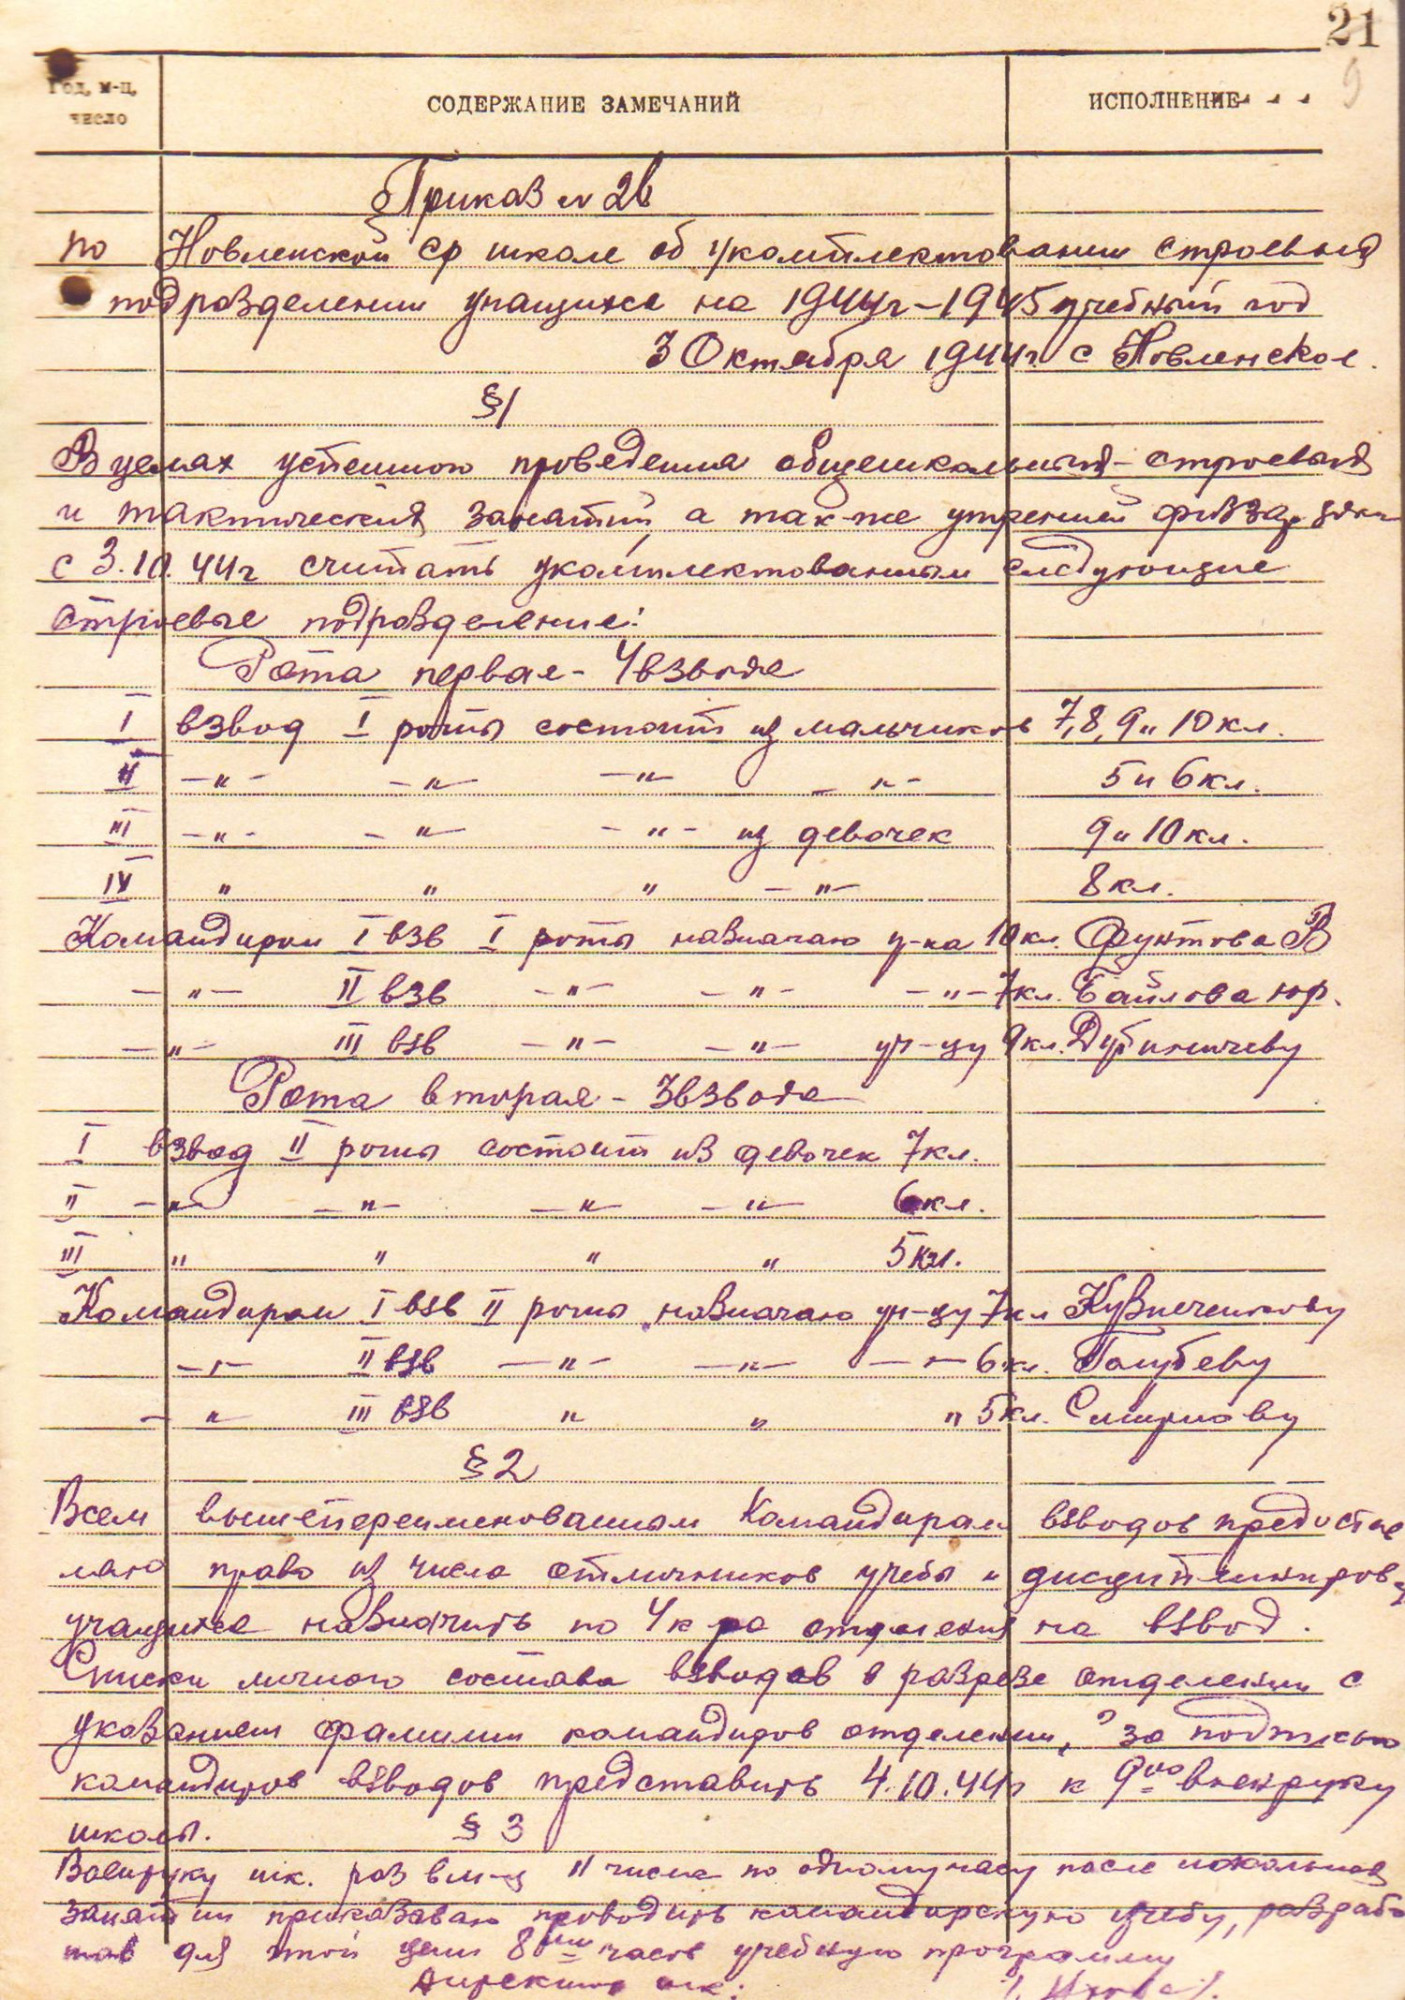 21
9
Год, м-ц, число
СОДЕРЖАНИЕ ЗАМЕЧАНИЙ
ИСПОЛНЕНИЕ
Приказ №
по Новленской ср школе об укомплектовании строевых
подразделении учащихся на 1944г – 1945 учебный год
3 Октября 1944г. с Новленское.
§1
В целях успешного проведения общешкольных строевых
и тактических занятий а так-же утренней физзарядки
с 3.10.44г считать укомплектованным следующие
строевые подразделение:
Рота первая – 4 взвода
I взвод I роты состоит из мальчиков 7,8,9 и 10 кл.
II –"– –"– –"– –"– 5 и 6 кл.
III –"– –"– –"– из девочек 9 и 10 кл.
IV " " " –"– 8 кл.
Командиром I взв I роты назначаю у-ка 10 кл. Фунтова В
–"– II взв –"– –"– –"– 7 кл. Байлова Юр.
–"– III взв –"– –"– уч-цу 9 кл.
Рота вторая – 3 взвода
I взвод II роты состоит из девочек 7 кл.
II –"– –"– –"– –"– 6 кл.
III " " " " 5 кл.
Командиром I взв II роты назначаю уч-цу 7 кл
–"– II взв –"– –"– –"– 6 кл. Голубеву
–"– III взв " " " 5 кл. Смирнову
§2
Всем вышепереименованным Командирам взводов предостав
ляю право из числа отличников учебы и дисциплиниров
учащихся назначить по 4 к-ра отделения на взвод.
Списки личного состава взводов в разрезе отделении с
указанием фамилии командиров отделении, за подписью
командиров взводов представить 4.10.44г к 9оо военруку
школы.
§3
Военруку шк. раз в м-ц II числа по одному часу после школьных
занятии приказываю проводить командирскую учебу, разрабо
тав для этой цели 8ми часов учебную программу
Директор шк: